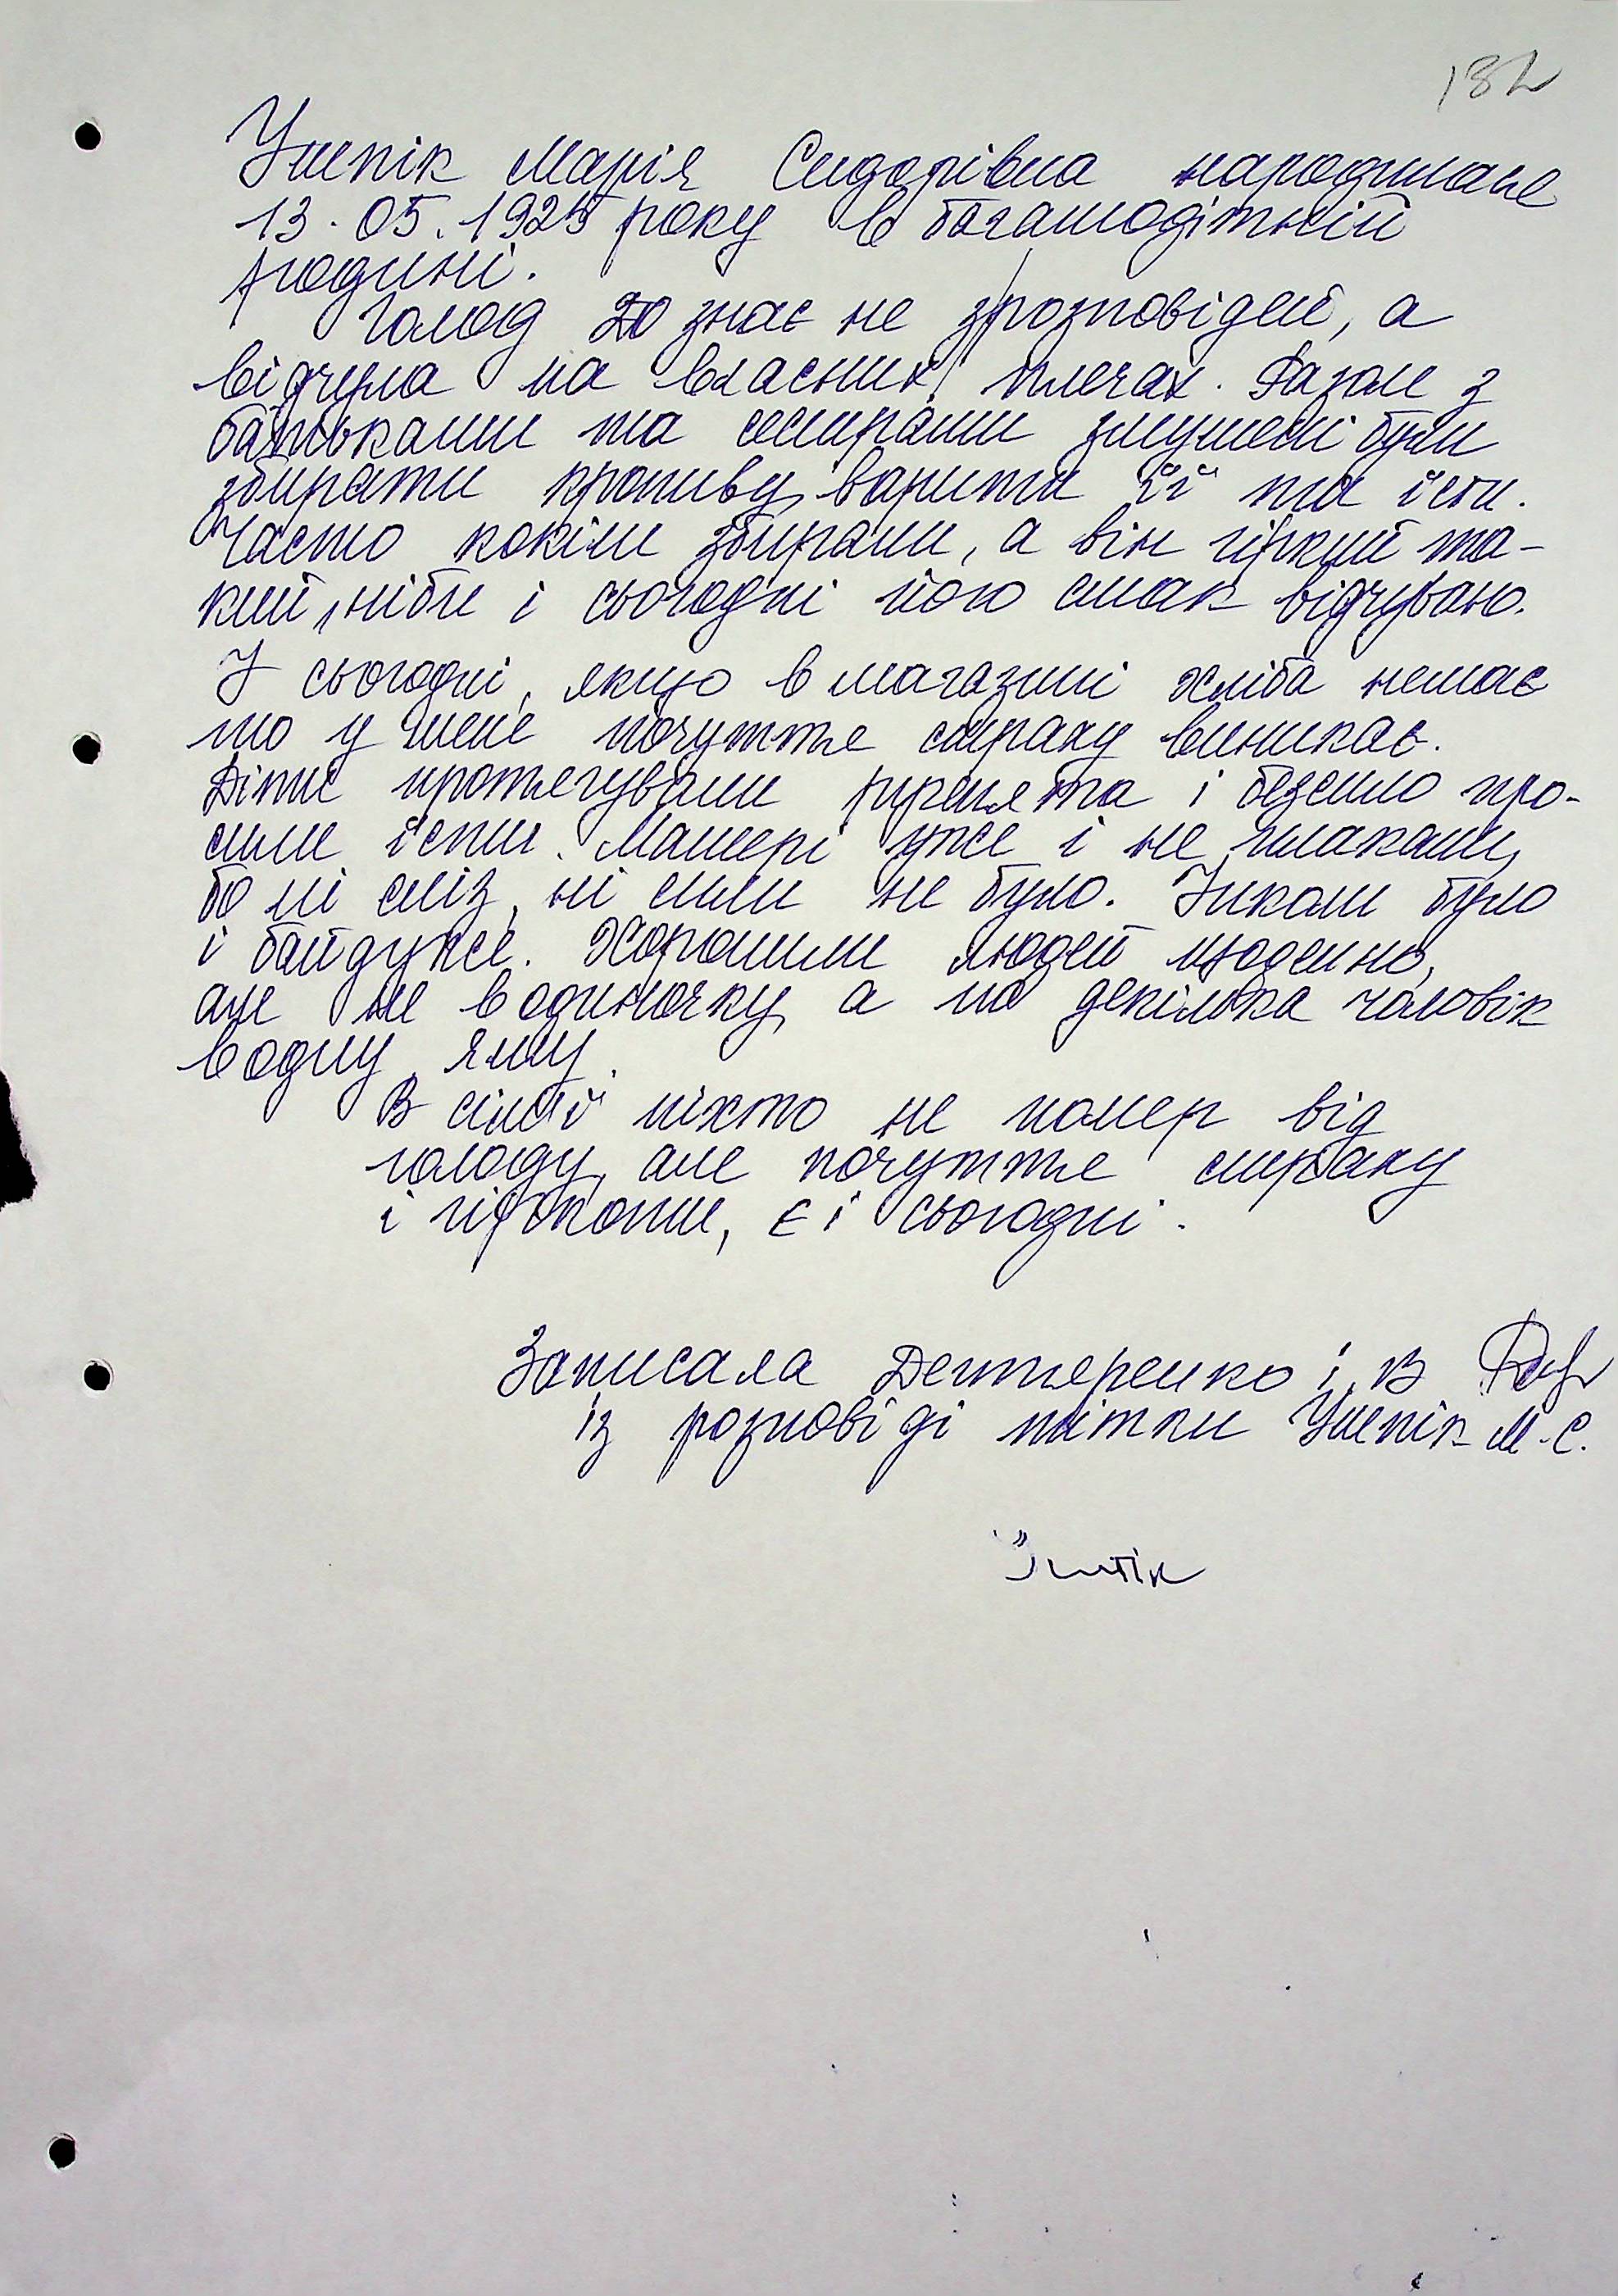 132
Ушпік Марія Сидорівна народилася
13.05.1925 року в багатодітній
родині.
Голод знає не з розповідей, а
відчула на власних плечах. Разом з
батьками та сестрами змушені були
збирати кропиву, варити її та їсти.
Часто кокіли збирали, а він гіркий та-
кий, ніби і сьогодні його смак відчуваю.
І сьогодні, якщо в магазині хліба немає
то у мене почуття страху виникає.
Діти протягували рученята і безсило про-
сили їсти. Матері уже і не плакали,
бо ні сліз, ні сили не було. Інколи було
і байдуже. Хоронили людей щоденно,
але не в одиночку, а по декілька чоловік
в одну яму.
В сім'ї ніхто не помер від
голоду, але почуття страху
і гіркоти, є і сьогодні.
Записала Дегтяренко І. В
із розповіді тітки Ушпік М. С.